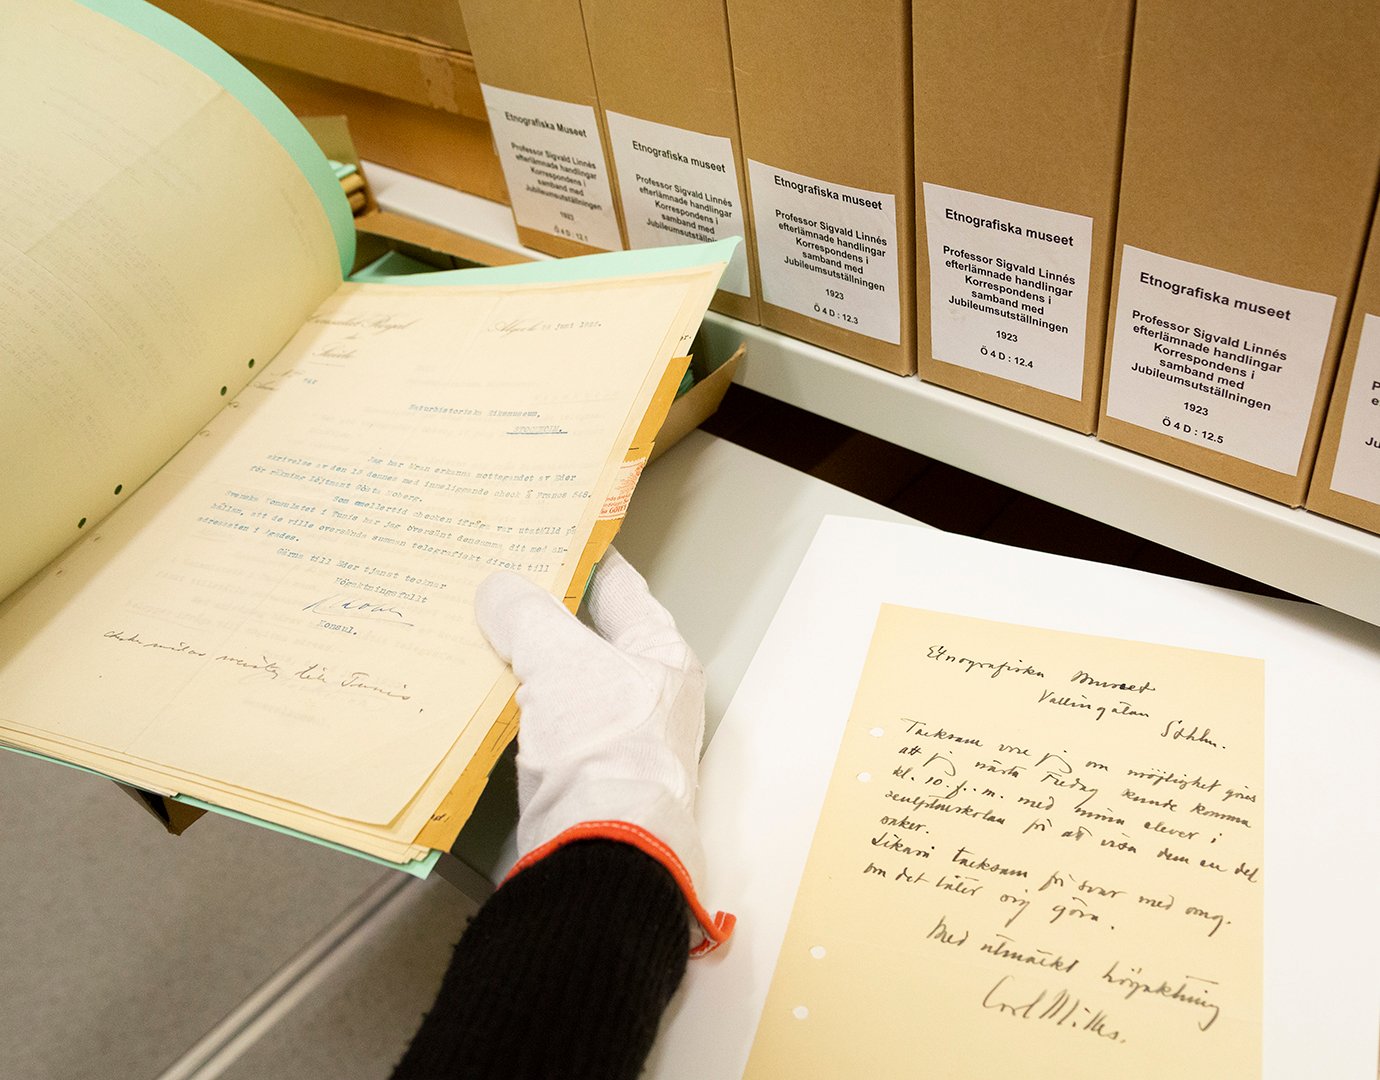 Etnografiska Museet
Professor Sigvald Linnés
efterlämnade handlingar
Korrespondens i
samband med
Jubileumsutställningen
1923
Ö 4 D : 12.1
Etnografiska museet
Professor Sigvald Linnés
efterlämnade handlingar
Korrespondens i
samband med
Etnografiska museet
Professor Sigvald Linnés
efterlämnade handlingar
Korrespondens i
samband med
Jubileumsutställningen
1923
Ö 4 D : 12.3
Etnografiska museet
Professor Sigvald Linnés
efterlämnade handlingar
Korrespondens i
samband med
Jubileumsutställningen
1923
Ö 4 D : 12.4
Etnografiska museet
Professor Sigvald Linnés
efterlämnade handlingar
Korrespondens i
samband med
Jubileumsutställningen
1923
Ö 4 D : 12.5
Consulat Royal
de
Suède
juni
Naturhistoriska Riksmuseum,
STOCKHOLM.
Jag har äran erkänna mottagandet av Eder
skrivelse av den 13 dennes med inneliggande check å Francs 548.
för räkning Löjtnant Gösta Moberg.
Som emellertid checken ifråga var utställd på
Svenska Konsulatet i Tunis har jag översänt densamma dit med an-
hållan, att de ville översända summan telegrafiskt direkt till
adressaten i Agades.
Gärna till Eder tjänst tecknar
Högaktningsfullt
Konsul.
till Tunis.
Etnografiska Museet
Vallingatan Sthlm.
Tacksam vore jag om möjlighet gives
att jag nästa Fredag kunde komma
kl. 10 f. m. med mina elever i
sculpturskolan för att visa dem en del
saker.
Likaså tacksam för svar med omg.
om det låter sig göra.
Med utmärkt högaktning
Carl Milles.